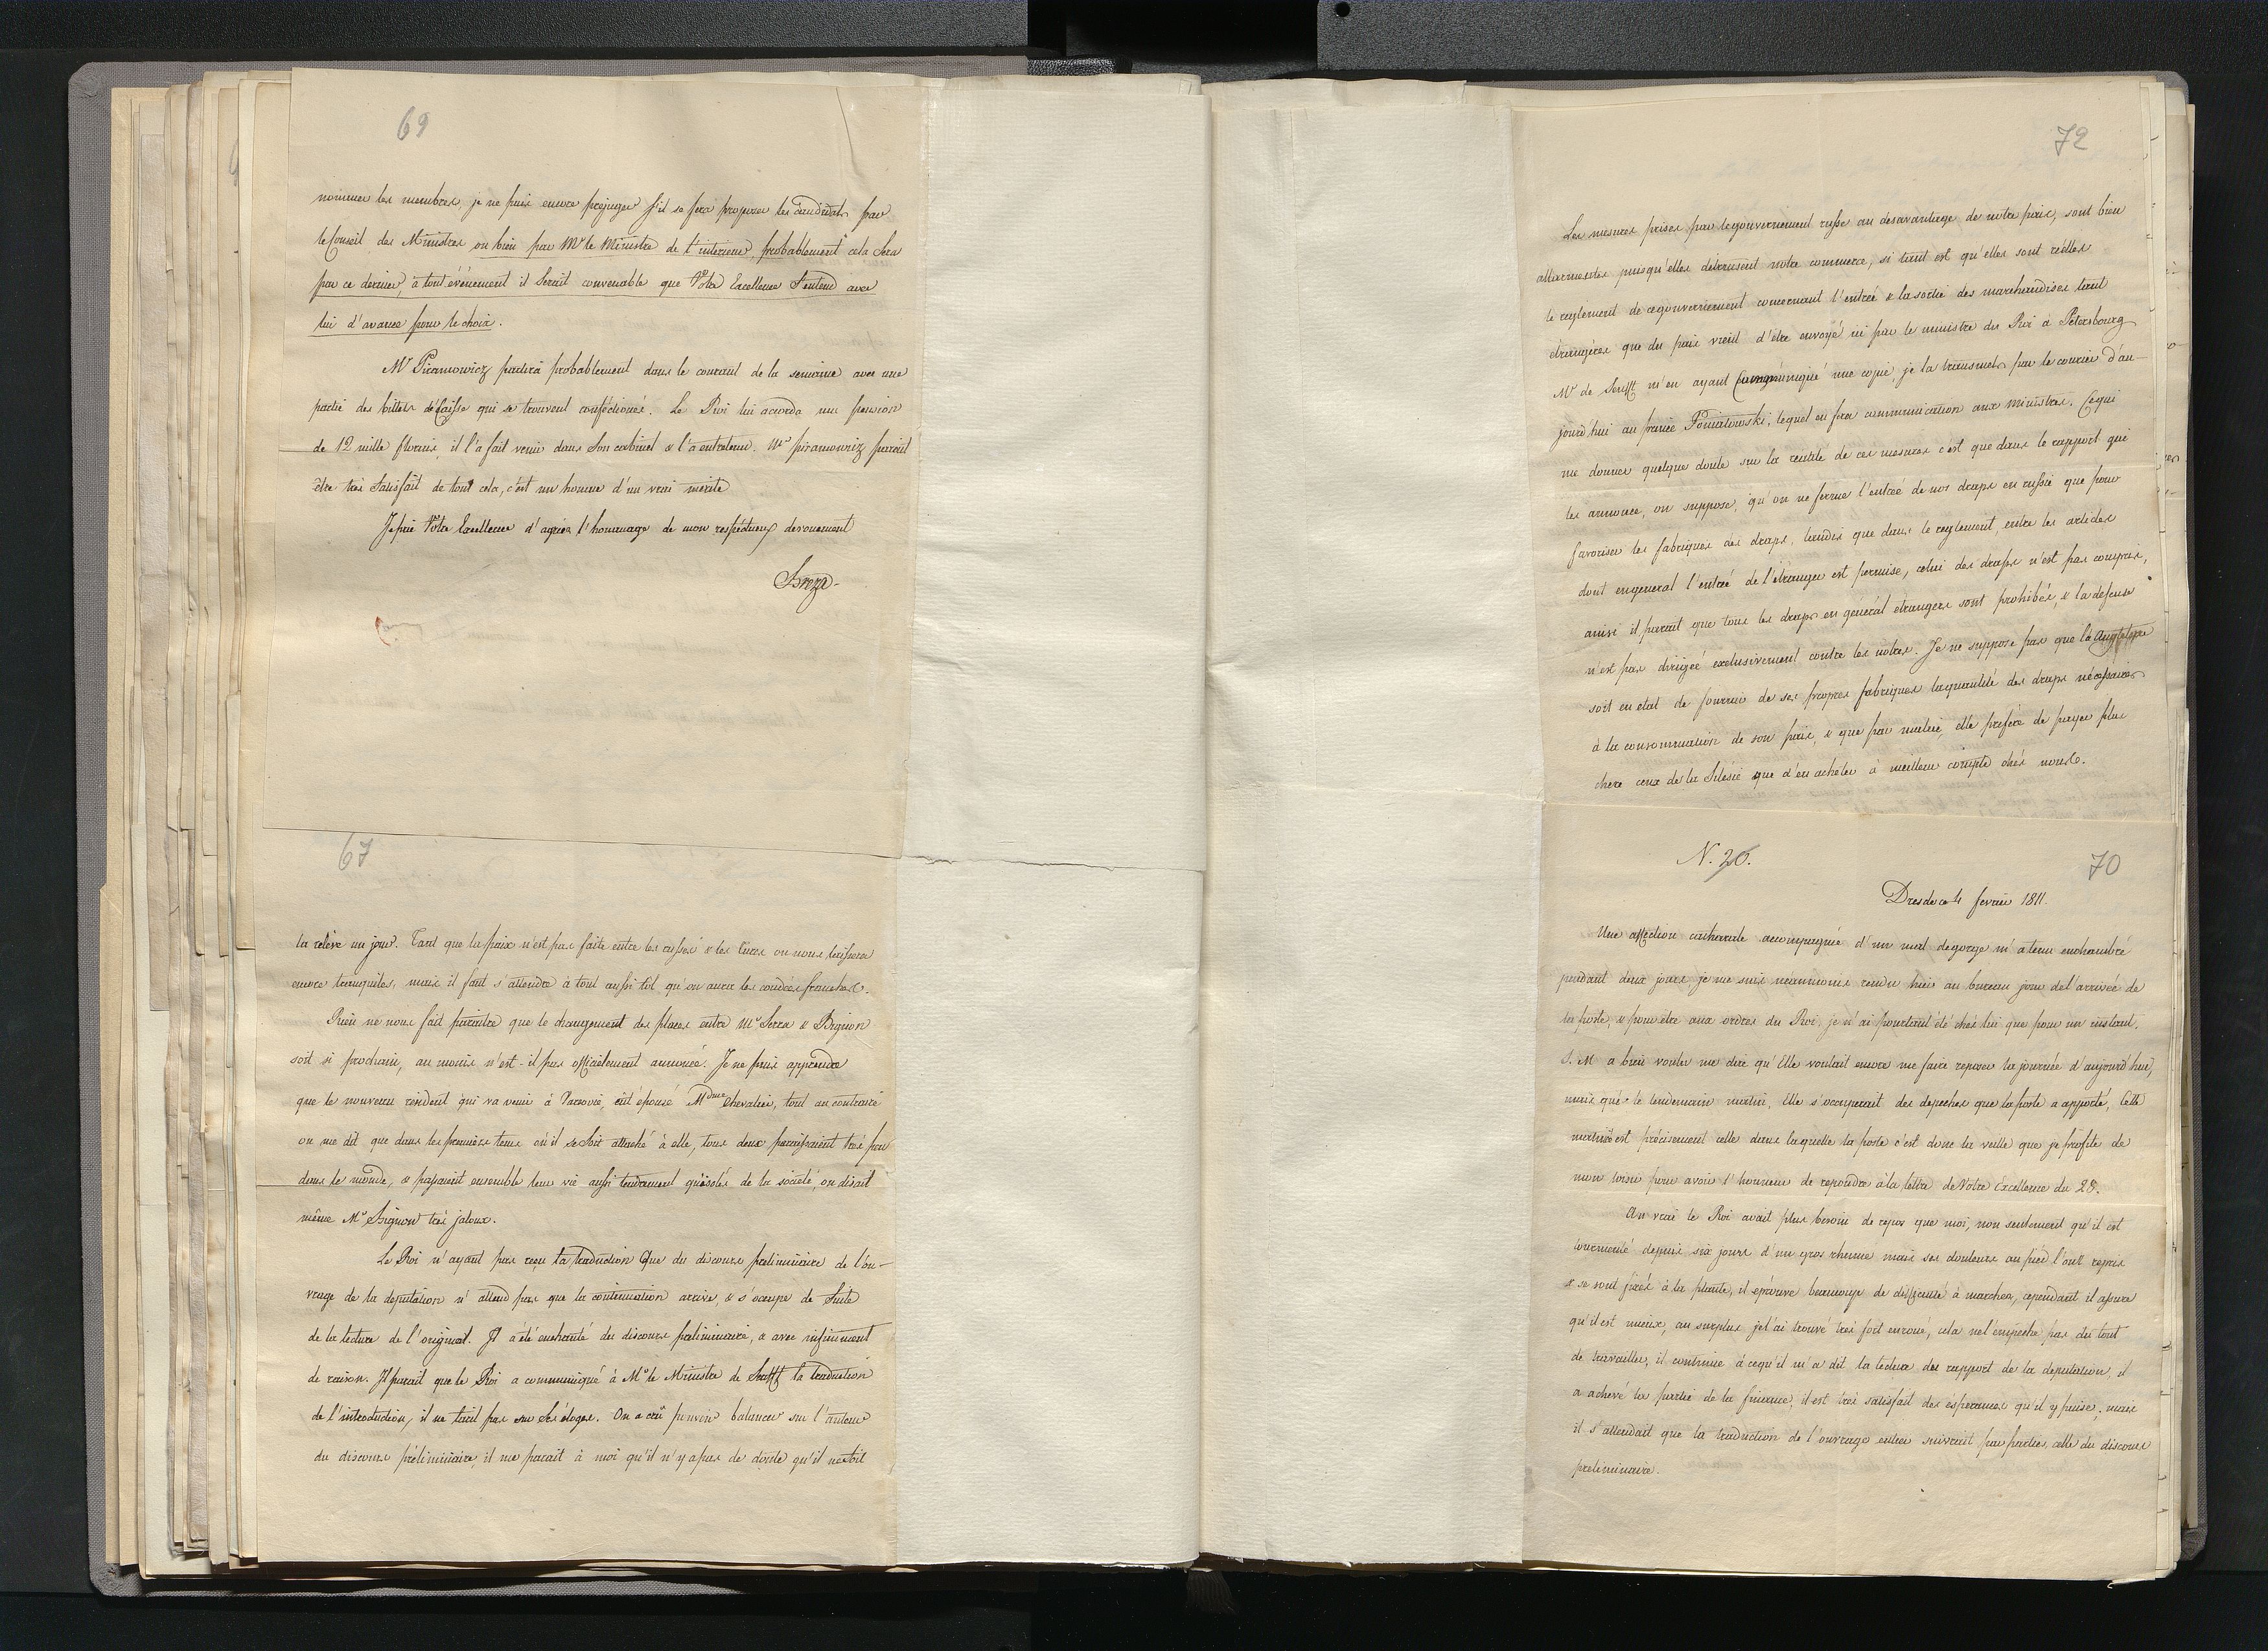 69
nommer les membres, je ne puis encore préjuger s'il se fera proposer les candidats par
le Conseil des Ministres ou bien par Mr le Ministre de l'interieur, probablement cela sera
par ce dernier, à tout évenement il serait convenable que Votre Excellence s'entend avec
lui d'avance pour le choix.
Mr Piramowicz partira probablement dans le courant de la semaine avec une
partie des billets de Caisse qui se trouvent conféctionés. Le Roi lui acorda une pension
de 12 mille florins, il l'a fait venir dans son cabinet & l'a entretenu. Mr piramowiz parait
être très satisfait de tout cela, c'ést un homme d'un vrai merite
Je prie Votre Excellence d'agréer l'hommage de mon respéctueux devouement
Breza
67
la relève un jour. Tant que la paix n'est pas faite entre les russes & les turcs on nous laissera
encore tranquiles, mais il faut s'attendre à tout aussi tôt qu'on aura les coudées franches.
Rien ne nous fait paraitre que le changement des places entre Mr Serra & Bignon
soit si prochain, au moins n'est-il pas officiélement annoncé. Je ne puis apprendre
que le nouveau résident qui va venir à Varsovie, eût épousé Mdme Chevalier, tout au contraire
on me dit que dans les premièrs tems où il se soit attaché à elle, tous deux paraissaient très peu
dans le monde, & passaient ensemble leur vie aussi tendrement qu'isolés de la société, on disait
même Mr Bignon très jaloux.
Le Roi n'ayant pas reçu la traduction que du discours preliminaire de l'ou-
vrage de la deputation n'attend pas que la continuation arrive, & s'occupe de suite
de la lecture de l'original. Il a été enchanté du discours preliminaire, & avec infiniment
de raison. Il parait que le Roi a communiqué à Mr le Ministre de Senfft la traduction
de l'introduction, il ne tarit pas sur ses éloges. On a crû pouvoir balancer sur l'auteur
du discours préliminaire, il me parait à moi qu'il n'y a pas de doute qu'il ne soit
72
Les mesures prises par le gouvernement russe au desavantage de notre païs, sont bien
allarmantes puisqu'elles détruisent notre commerce, si tant est qu'elles sont réelles
le reglement de ce gouvernement concernant l'entrée & la sortie des marchandises tant
etrangères que du païs vient d'etre envoyé ici par le ministre du Roi à Pétersbourg
Mr de Senfft m'en ayant Communiqué une copie, je la transmets par le courier d'au-
jourd'hui au prince Poniatowski, lequel en fera communication aux ministres. Ce qui
me donne quelque doute sur la réalité de ces mesures c'est que dans le rapport qui
les annonce, on suppose, qu'on ne ferme l'entrée de nos draps en russie que pour
favoriser les fabriques des draps, tandis que dans le reglement, entre les articles
dont en general l'entrée de l'étranger est permise, celui des draps n'est pas compris,
ainsi il parait que tous les draps en général etrangers sont prohibés, & la defense
n'est pas dirigée exclusivement contre les notres. Je ne suppose pas que la
soit en etat de fournir de ses propres fabriques la quantité des draps nécessaires
à la consommation de son païs, & que par malice, elle préfère de payer plus
chere ceux de la Silésie que d'en acheter à meilleur compte chés nous.
N. 26.
70
Dresde ce 4 fevrier 1811.
Une affection catharale accompagnée d'un mal de gorge m'a tenu enchambré
pendant deux jours, je me suis néanmoins rendu hier au bureau jour de l'arrivée de
la poste, & pour être aux ordres du Roi, je n'ai pourtant été chés lui que pour un instant.
S. M a bien voulu me dire qu'Elle voulait encore me faire reposer la journée d'aujourd'hui,
mais que le lendemain matin, Elle s'occuperait des depeches que la poste a apporté, Cette
matinée est précisement celle dans laquelle la poste c'est donc la veille que je profite de
mon loisir pour avoir l'honneur de repondre à la lettre de Votre Excellence du 28.
Au vrai le Roi avait plus besoin de repos que moi, non seulement qu'il est
tourmenté depuis six jours d'un gros rhume mais ses douleurs au pied l'ont repris
& se sont fixés à la plante, il eprouve beaucoup de difficulté à marcher, cependant il assure
qu'il est mieux, au surplus je l'ai trouvé très fort enroué, cela ne l'empeche pas du tout
de travailler, il continue à ce qu'il m'a dit la lecture du rapport de la deputation, il
a achevé la partie de la finance, il est très satisfait des ésperances qu'il y puise, mais
il s'attendait que la traduction de l'ouvrage entier suivrait par parties, celle du discours
preliminaire.